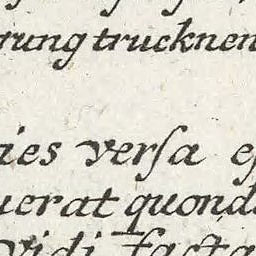 rung trucknen
ies verſa eſ
uerat quonda
vidi facta